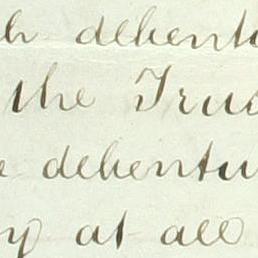 h debent
the Trus
e debentu
y at all